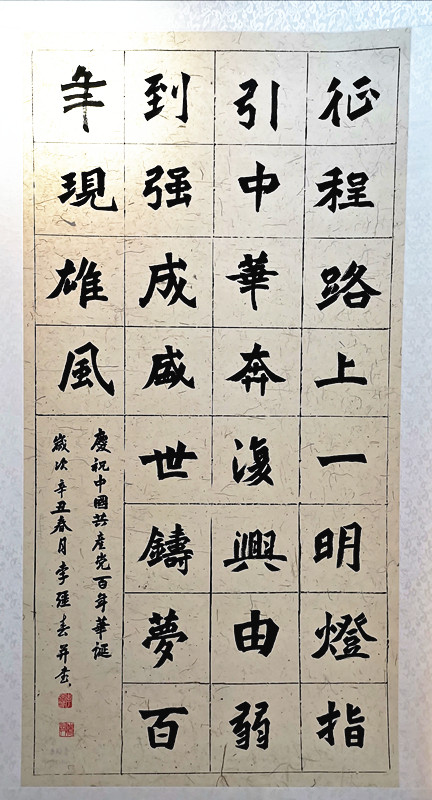 征程路上一明燈指
引中華奔復興由弱
到强成盛世鑄夢百
年現雄風
慶祝中國共產党百年華誕
歲次辛丑春月李并書